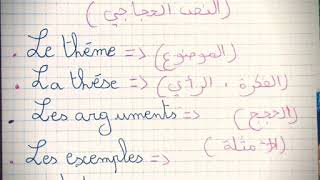 (النص الحجاجي)
Le théme => (الموضوع)
La thése => (الفكرة ، الرأي)
Les arguments => (الحجج)
Les exemples => (الأمثلة)